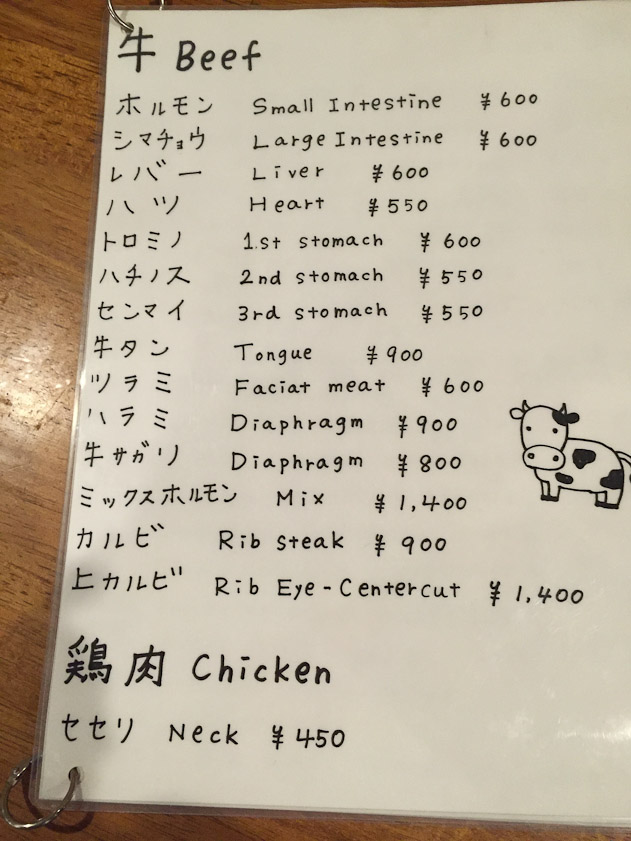 牛 Beef
ホルモン Small Intestine ¥600
シマチョウ Large Intestine ¥600
レバー Liver ¥600
ハツ Heart ¥550
トロミノ 1.st stomach ¥600
ハチノス 2nd stomach ¥550
センマイ 3rd stomach ¥550
牛タン Tongue ¥900
ツラミ Faciat meat ¥600
ハラミ Diaphragm ¥900
牛サガリ Diaphragm ¥800
ミックスホルモン Mix ¥1,400
カルビ Rib steak ¥900
上カルビ Rib Eye-Centercut ¥1,400
鶏肉 Chicken
セセリ Neck ¥450